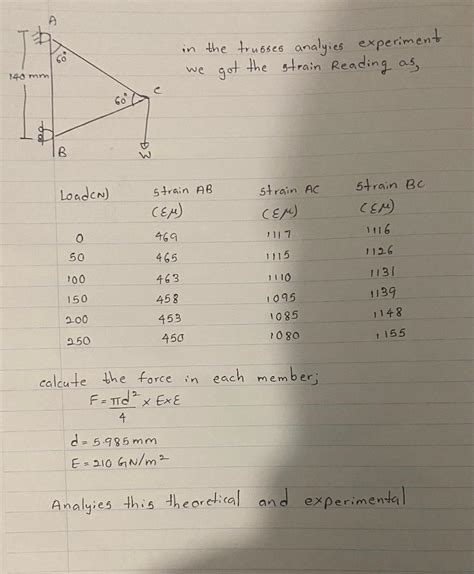 A
60°
140 mm
60°
C
B
W
in the trusses analyies experiment
we got the strain Reading as,
Load(N) strain AB strain AC strain BC
(εμ) (εμ) (εμ)
0 469 1117 1116
50 465 1115 1126
100 463 1110 1131
150 458 1095 1139
200 453 1085 1148
250 450 1080 1155
calcute the force in each member;
F = πd²/4 × E×ε
d = 5.985 mm
E = 210 GN/m²
Analyies this theoretical and experimental